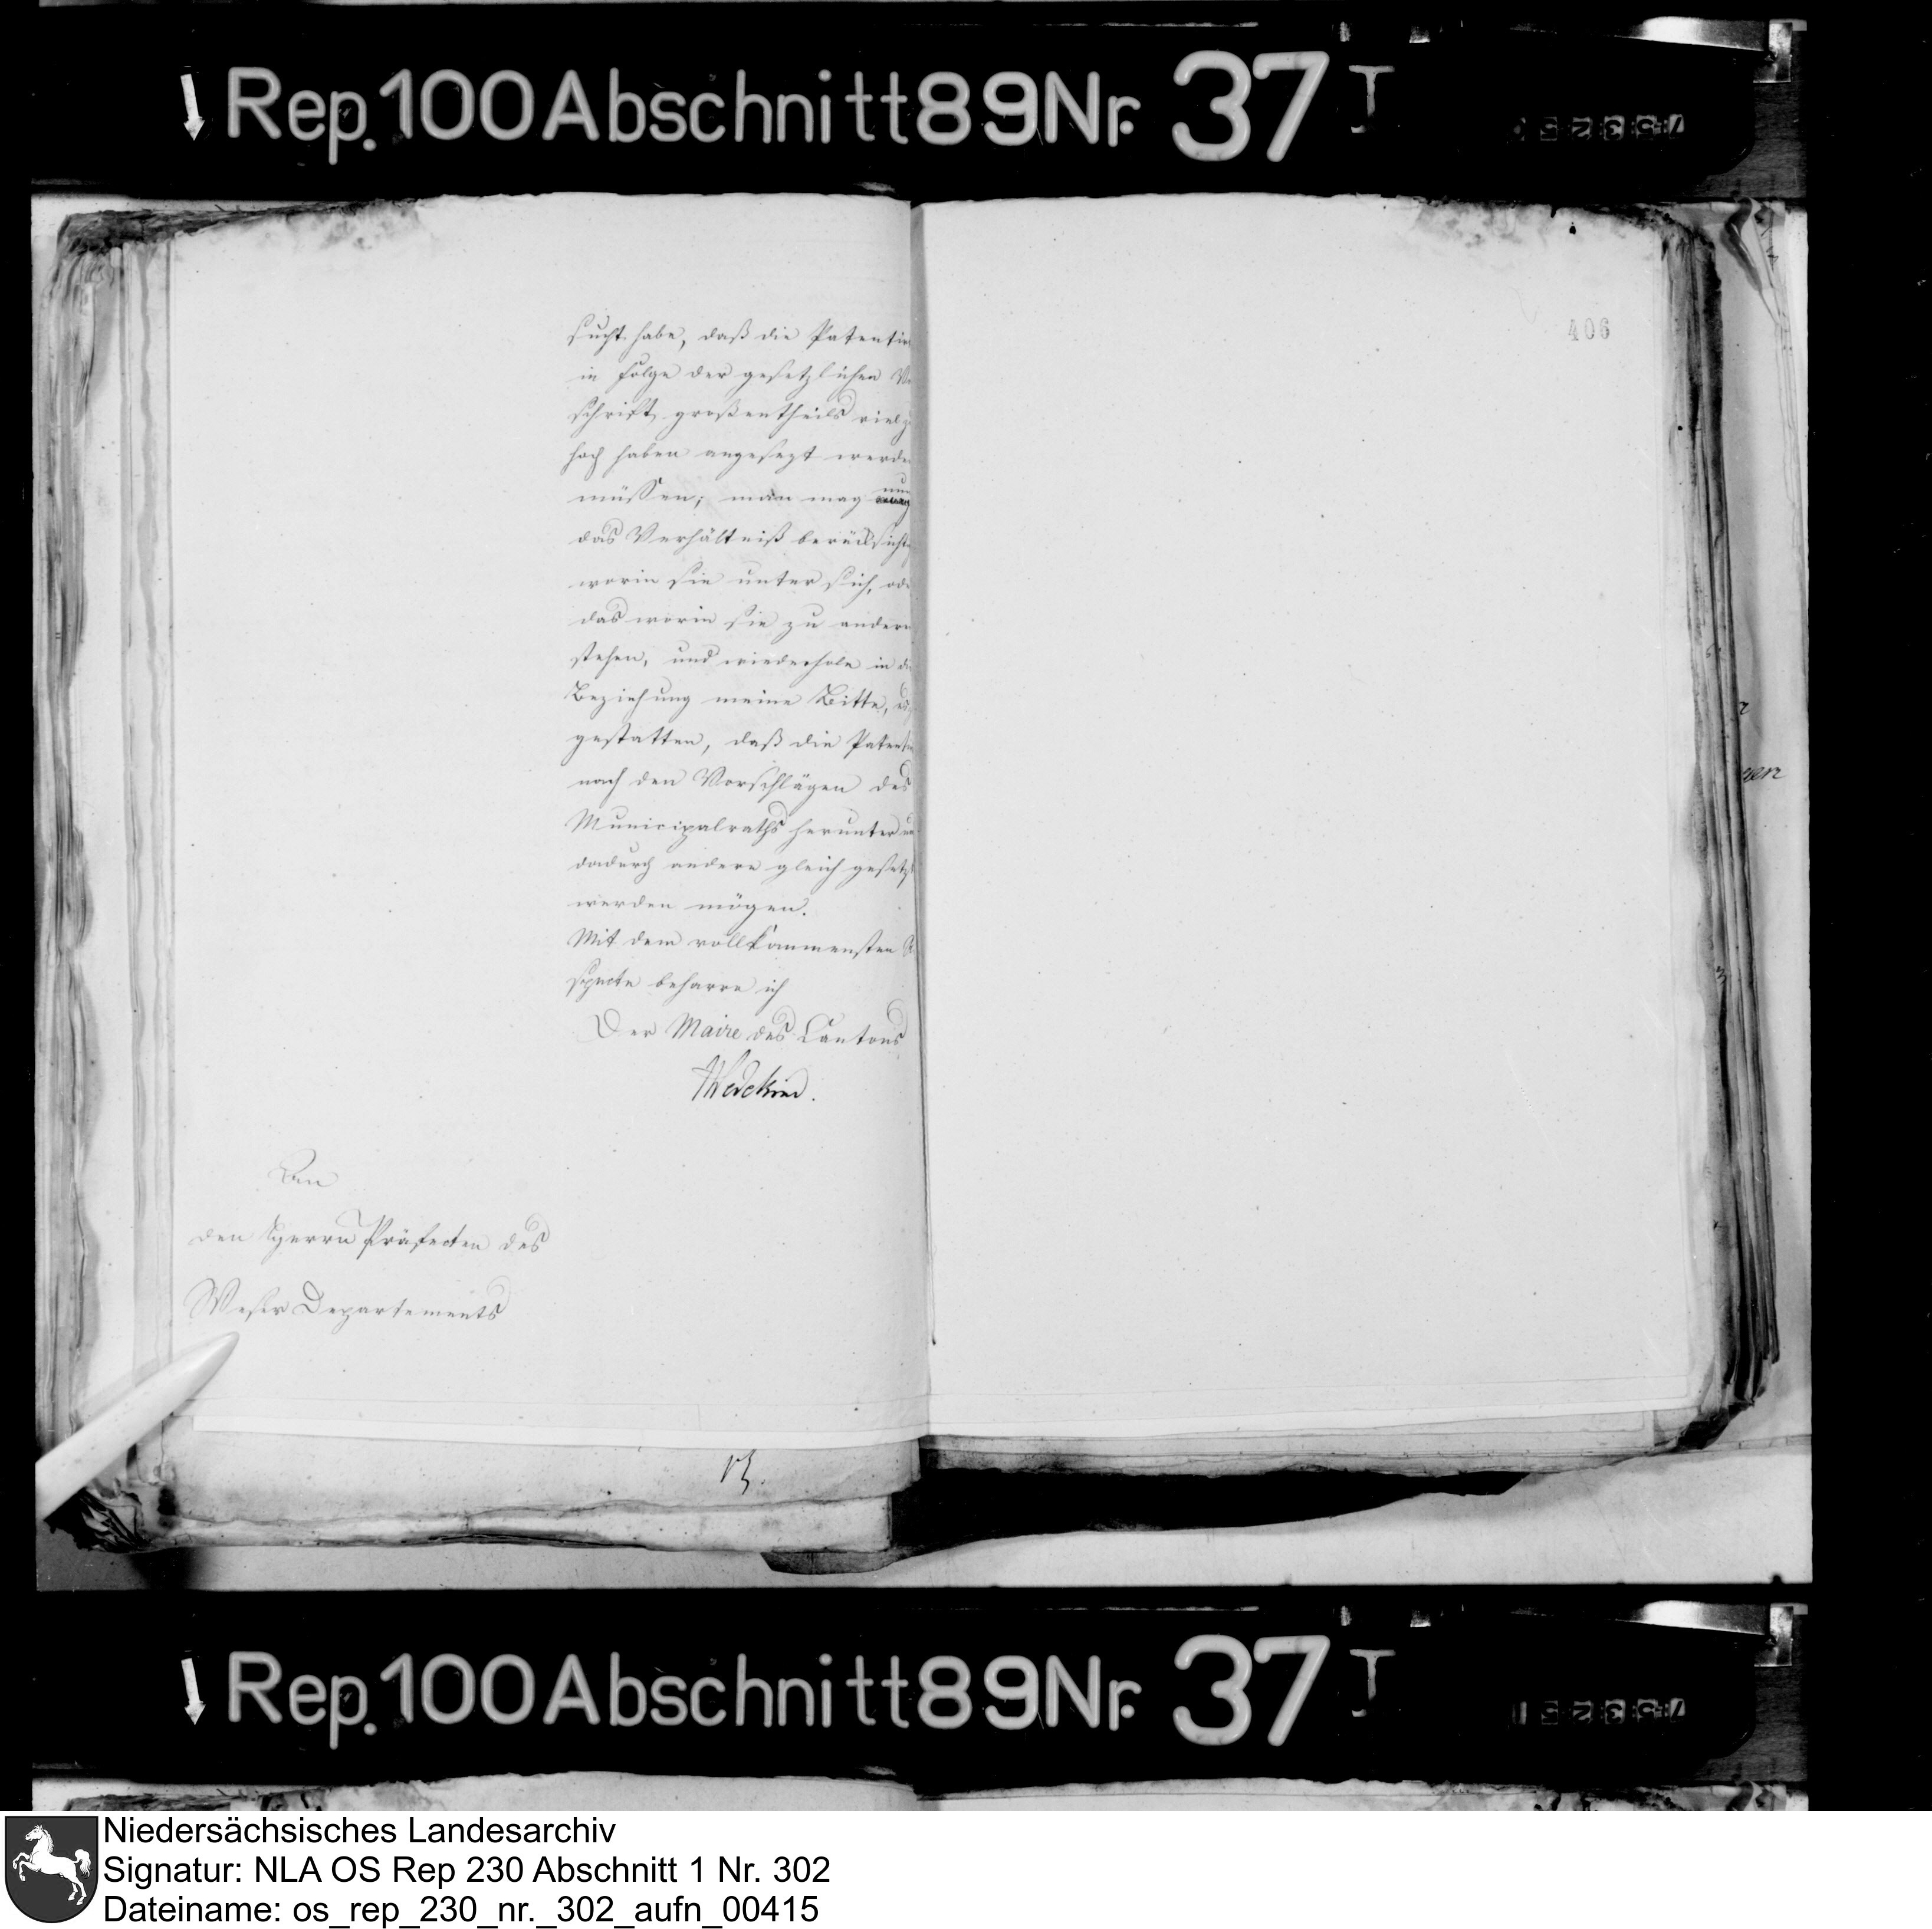 Rep. 100 Abschnitt 89 Nr. 37 I
406
sucht habe, daß die Patentir
in Folge der gesetzlichen Vo
schrift großentheils viel z
hoch haben angesezt werde
müssen; man mag nun
das Verhältniß berücksicht
worin sie unter sich, ode
das worin sie zu andern
stehen, und wiederhole in
Beziehung meine Bitte,
gestatten, daß die Patent
nach den Vorschlägen des
Municipalraths herunter
dadurch andere gleich gesetzt
werden mögen.
Mit dem vollkommensten
specte beharre ich
Der Maire des Cantons
Wedekind.
An
den Herrn Präfecten des
Weser Departements
Rep. 100 Abschnitt 89 Nr. 37 I
Niedersächsisches Landesarchiv
Signatur: NLA OS Rep 230 Abschnitt 1 Nr. 302
Dateiname: os_rep_230_nr._302_aufn_00415